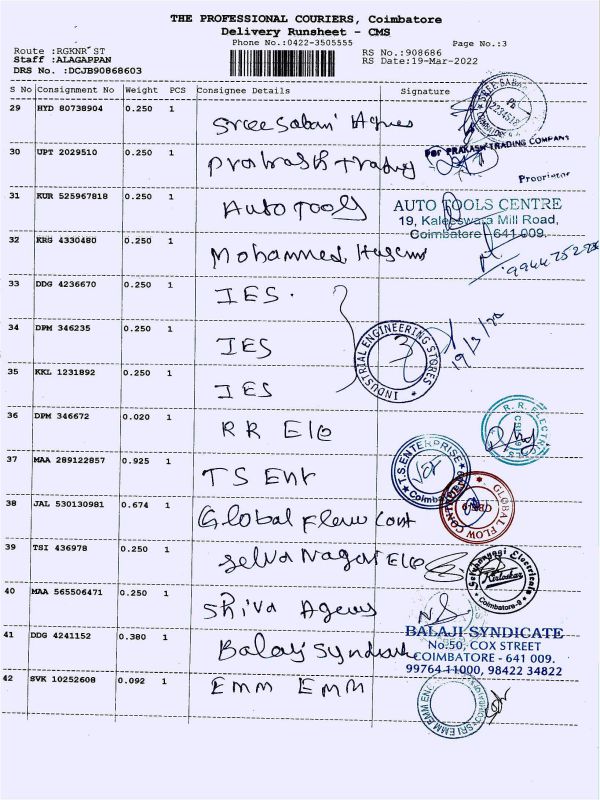 THE PROFESSIONAL COURIERS, Coimbatore
Delivery Runsheet - CMS
Phone No.:0422-3505555
Page No.:3
Route :RGKNR ST
RS No.:908686
Staff :ALAGAPPAN
RS Date:19-Mar-2022
DRS No. :DCJB90868603
S No Consignment No Weight PCS Consignee Details Signature
29 HYD 80738904 0.250 1 Sree Sabari
30 UPT 2029510 0.250 1 Prakash Trading
For PRAKASH TRADING COMPANY
Proprietor
31 KUR 525967818 0.250 1 Auto Tools
AUTO TOOLS CENTRE
19, Kaleeswara Mill Road,
Coimbatore - 641 009.
32 KRG 4330480 0.250 1 Mohammed
33 DDG 4236670 0.250 1 IES.
34 DPM 346235 0.250 1 IES
INDUSTRIAL ENGINEERING STORES
3
35 KKL 1231892 0.250 1 IES
36 DPM 346672 0.020 1 RR Ele
37 MAA 289122857 0.925 1 TS Ent
T.S. ENTERPRISE
38 JAL 530130981 0.674 1 Global Flow Cont
GLOBAL FLOW
39 TSI 436978 0.250 1 Selva Nagai Ele
Kirloskar
Coimbatore-9
40 MAA 565506471 0.250 1 Shiva Agencys
41 DDG 4241152 0.380 1 Balaji Syndicate
BALAJI SYNDICATE
No.50, COX STREET
COIMBATORE - 641 009.
99764 11000, 98422 34822
42 SVK 10252608 0.092 1 EMM EMM